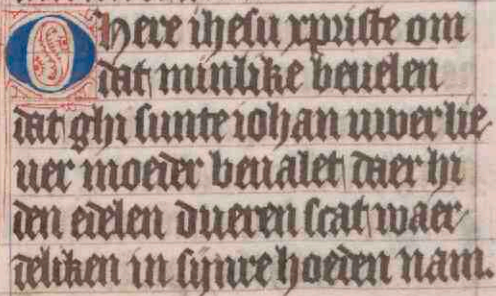 O here ihesu xpriste om
dat minlike beuelen
dat ghi sunte iohan uwer lie
uer moeder beualet daer hi
den edelen dueren scat waer
deliken in sijnre hoeden nam.